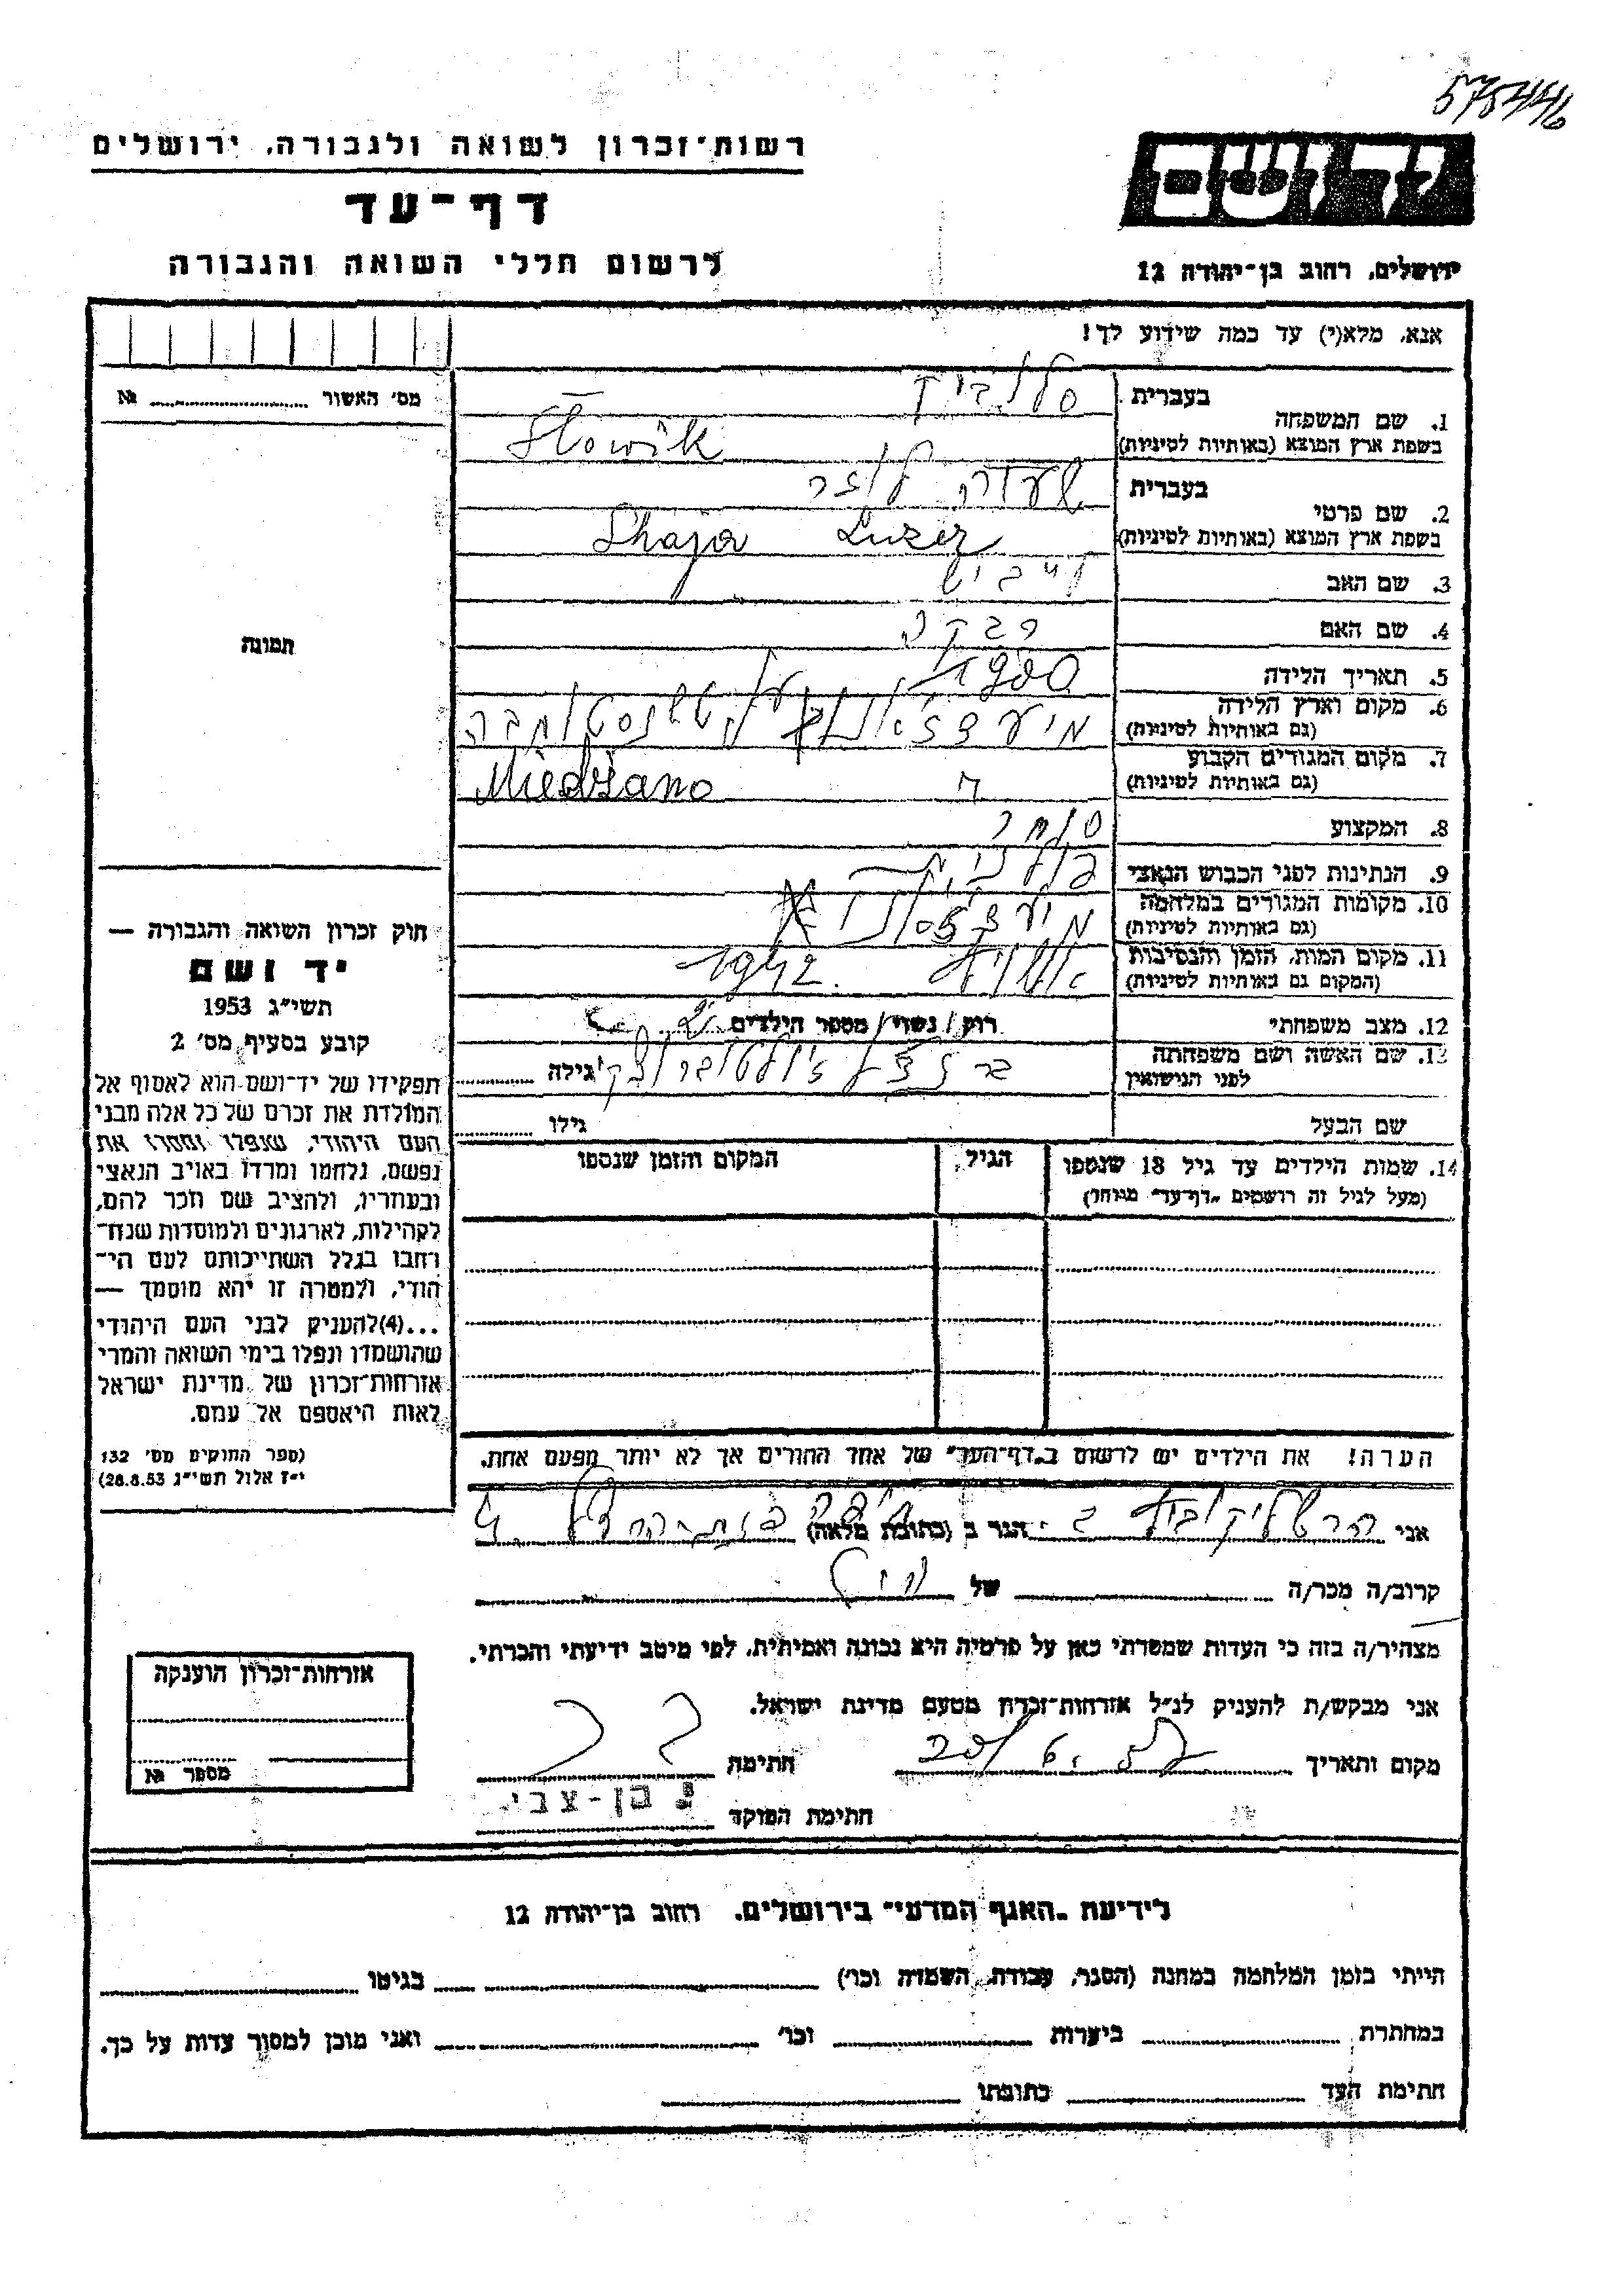 575446
רשות-זכרון לשואה ולגבורה, ירושלים
דף-עד
לרשום חללי השואה והגבורה
יד ושם
ירושלים, רחוב בן-יהודה 12
אנא, מלא(י) עד כמה שידוע לך!
מס' האשור № 
1. שם המשפחה
בעברית
בשפת ארץ המוצא (באותיות לטיניות) Słowik
2. שם פרטי
בעברית
בשפת ארץ המוצא (באותיות לטיניות) Shaja Luzer
3. שם האב לייביש
4. שם האם רבקה
5. תאריך הלידה 1900
6. מקום וארץ הלידה
(גם באותיות לטיניות)
7. מקום המגורים הקבוע
(גם באותיות לטיניות) Miedžano
8. המקצוע סוחר
9. הנתינות לפני הכבוש הנאצי פולנית
10. מקומות המגורים במלחמה
(גם באותיות לטיניות)
11. מקום המות, הזמן והנסיבות
(המקום גם באותיות לטיניות) 1942
12. מצב משפחתי רווק / נשוי / מספר הילדים
13. שם האשה ושם משפחתה
לפני הנישואין גילה
שם הבעל גילו
14. שמות הילדים עד גיל 18 שנספו הגיל המקום והזמן שנספו
(מעל לגיל זה רושמים "דף-עד" מיוחד)
הערה! את הילדים יש לרשום ב"דף-העד" של אחד ההורים אך לא יותר מפעם אחת.
תמונה
חוק זכרון השואה והגבורה —
יד ושם
תשי"ג 1953
קובע בסעיף מס' 2
תפקידו של יד-ושם הוא לאסוף אל
המולדת את זכרם של כל אלה מבני
העם היהודי, שנפלו ומסרו את
נפשם, נלחמו ומרדו באויב הנאצי
ובעוזריו, ולהציב שם וזכר להם,
לקהילות, לארגונים ולמוסדות שנח-
רבו בגלל השתייכותם לעם הי-
הודי, ולמטרה זו יהא מוסמך —
...(4)להעניק לבני העם היהודי
שהושמדו ונפלו בימי השואה והמרי
אזרחות-זכרון של מדינת ישראל
לאות היאספם אל עמם.
(ספר החוקים מס' 132
י"ז אלול תשי"ג 28.8.53)
אני הרשליקוביץ הגר ב (כתובת מלאה)
קרוב/ה מכר/ה של
מצהיר/ה בזה כי העדות שמסרתי כאן על פרטיה היא נכונה ואמיתית, לפי מיטב ידיעתי והכרתי.
אני מבקש/ת להעניק לנ"ל אזרחות-זכרון מטעם מדינת ישראל.
מקום ותאריך חתימה
חתימת הפוקד י. בן-צבי
אזרחות-זכרון הוענקה
מספר №
לידיעת "האגף המדעי" בירושלים, רחוב בן-יהודה 12
הייתי בזמן המלחמה במחנה (הסגר, עבודה, השמדה וכו') בגיטו
במחתרת ביערות וכו' ואני מוכן למסור עדות על כך.
חתימת העד כתובתו